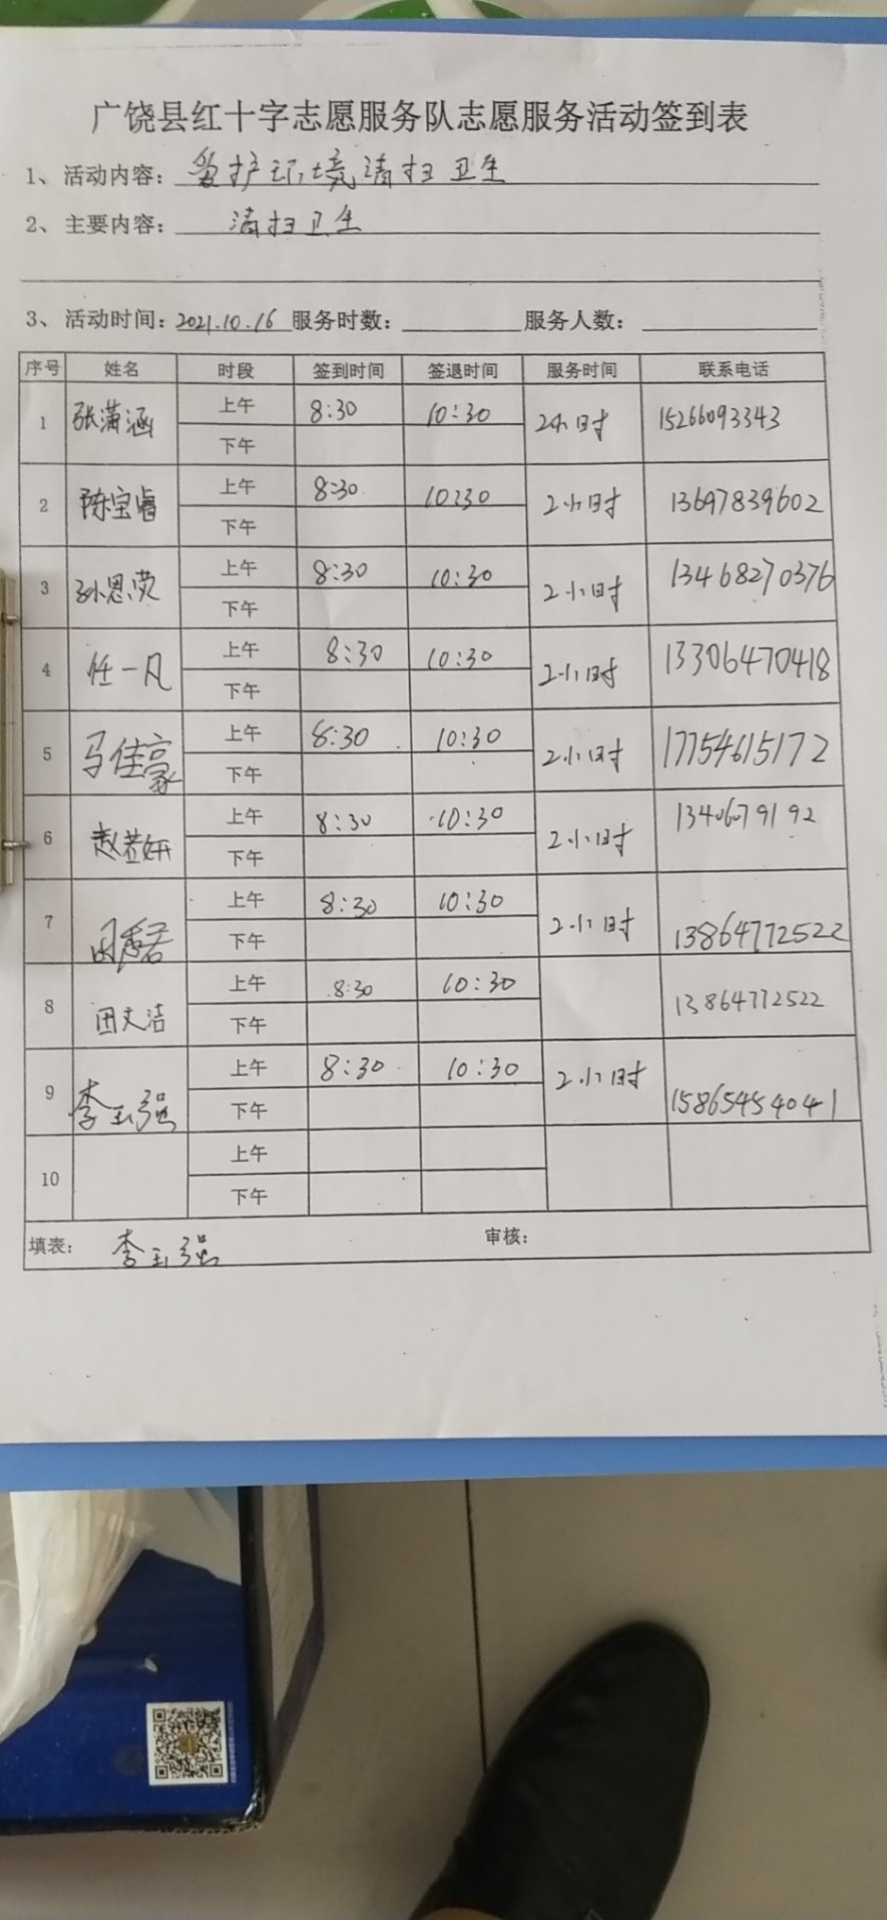 广饶县红十字志愿服务队志愿服务活动签到表
1、活动内容：爱护环境清扫卫生
2、主要内容：清扫卫生
3、活动时间：2021.10.16 服务时数： 服务人数：
序号 姓名 时段 签到时间 签退时间 服务时间 联系电话
1 张潇涵 上午 8:30 10:30 2小时 15266093343
下午
2 陈宝睿 上午 8:30 10:30 2小时 13697839602
下午
3 孙恩荧 上午 8:30 10:30 2小时 13468270376
下午
4 任一凡 上午 8:30 10:30 2小时 13306470418
下午
5 马佳豪 上午 8:30 10:30 2小时 17754615172
下午
6 赵若妍 上午 8:30 10:30 2小时 1340679192
下午
7 上午 8:30 10:30 2小时 13864772522
下午
8 田文洁 上午 8:30 10:30 13864772522
下午
9 李玉强 上午 8:30 10:30 2小时 15865454041
下午
10 上午
下午
填表： 李玉强 审核：